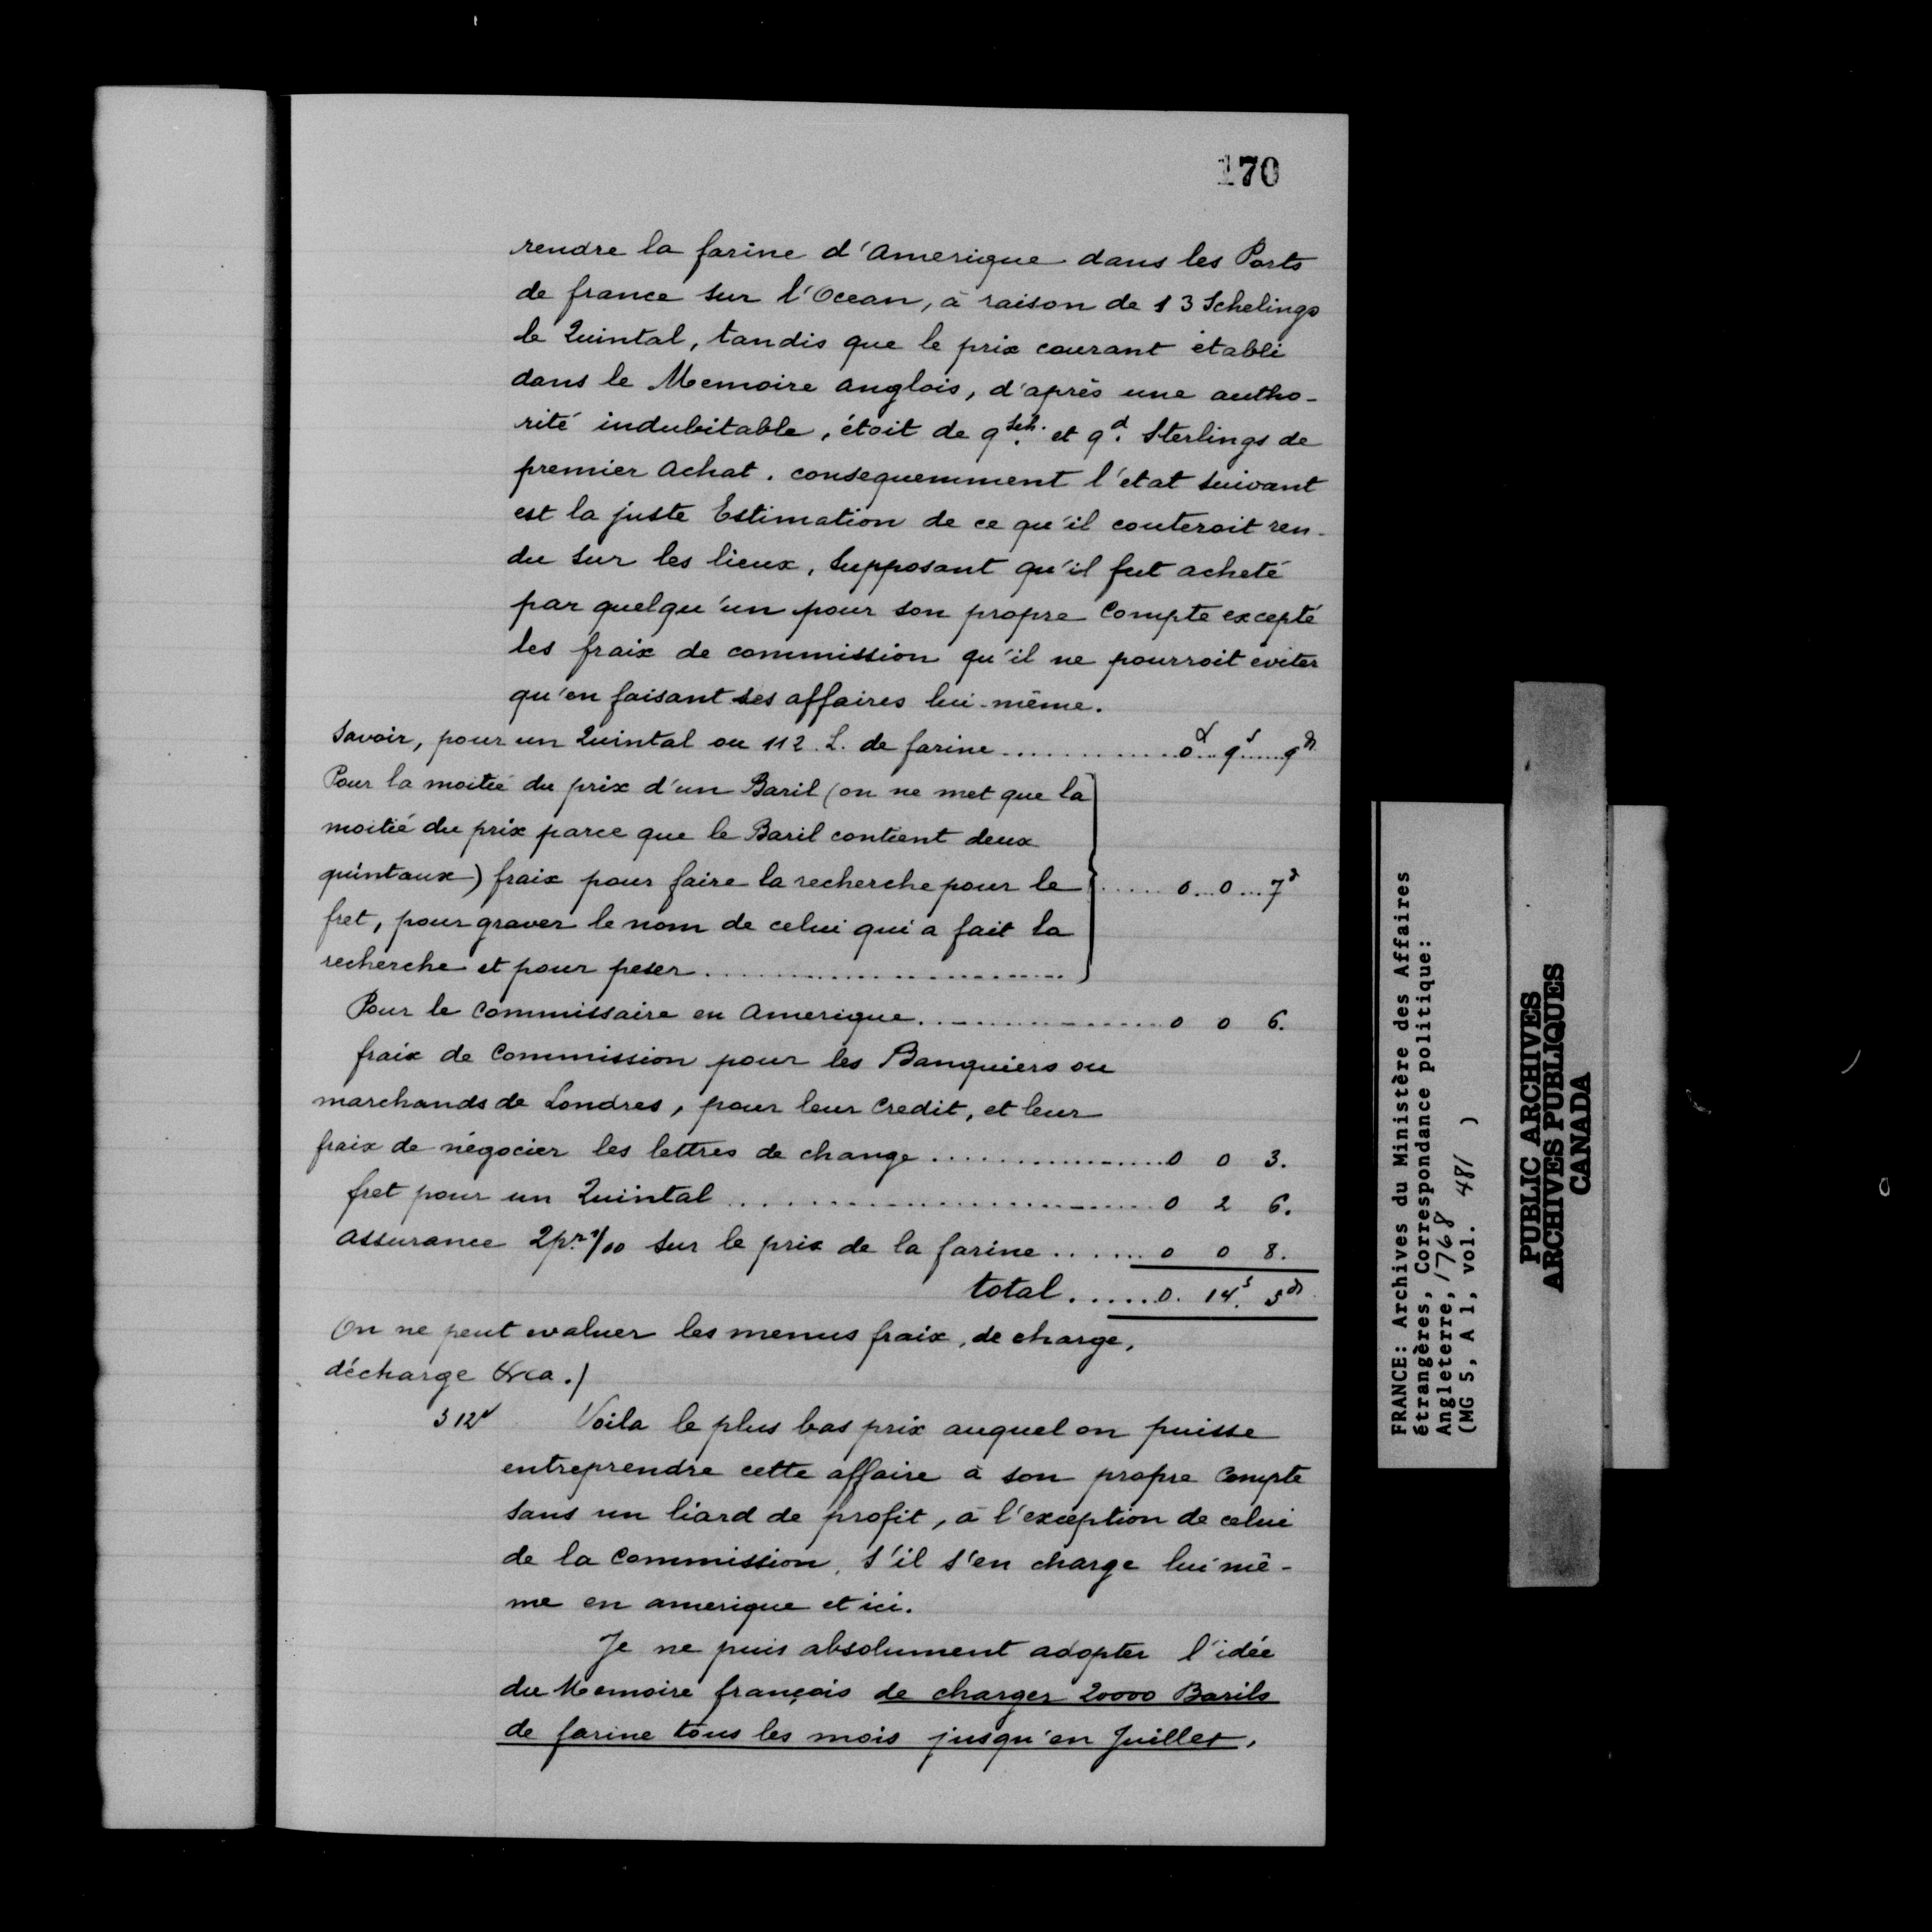 170
rendre la farine d'Amerique dans les Ports
de france sur l'Ocean, à raison de 13 Schelings
le Quintal, tandis que le prix courant établi
dans le Memoire anglois, d'après une autho-
rité indubitable, étoit de 9 sch. et 9 d. Sterlings de
premier achat. consequemment l'etat suivant
est la juste Estimation de ce qu'il couteroit ren-
du sur les lieux, supposant qu'il fut acheté
par quelqu'un pour son propre Compte excepté
les fraix de commission qu'il ne pourroit éviter
qu'en faisant ses affaires lui-même.
Savoir, pour un Quintal ou 112 L. de farine .............. 0 ... 9 s ..... 9 d
Pour la moitié du prix d'un Baril (on ne met que la
moitié du prix parce que le Baril contient deux
quintaux) fraix pour faire la recherche pour le ...... 0 ... 0 ... 7 d
fret, pour graver le nom de celui qui a fait la
recherche et pour peser ..........................
Pour le Commissaire en Amerique .................. 0 0 6.
fraix de Commission pour les Banquiers ou
marchands de Londres, pour leur credit, et leur
fraix de négocier les lettres de change .................. 0 0 3.
fret pour un Quintal .............................. 0 2 6.
assurance 2 pr. %00 sur le prix de la farine ....... 0 0 8.
total ...... 0. 14 s. 5 d
On ne peut evaluer les menus fraix, de charge,
décharge &ca.)
312 v Voila le plus bas prix auquel on puisse
entreprendre cette affaire à son propre Compte
sans un liard de profit, à l'exception de celui
de la Commission, s'il s'en charge lui mê-
me en amerique et ici.
Je ne puis absolument adopter l'idée
du Memoire françois de charger 20000 Barils
de farine tous les mois jusqu'en Juillet,
FRANCE: Archives du Ministère des Affaires
étrangères, Correspondance politique:
Angleterre, 1768
(MG 5, A 1, vol. 481 )
PUBLIC ARCHIVES
ARCHIVES PUBLIQUES
CANADA